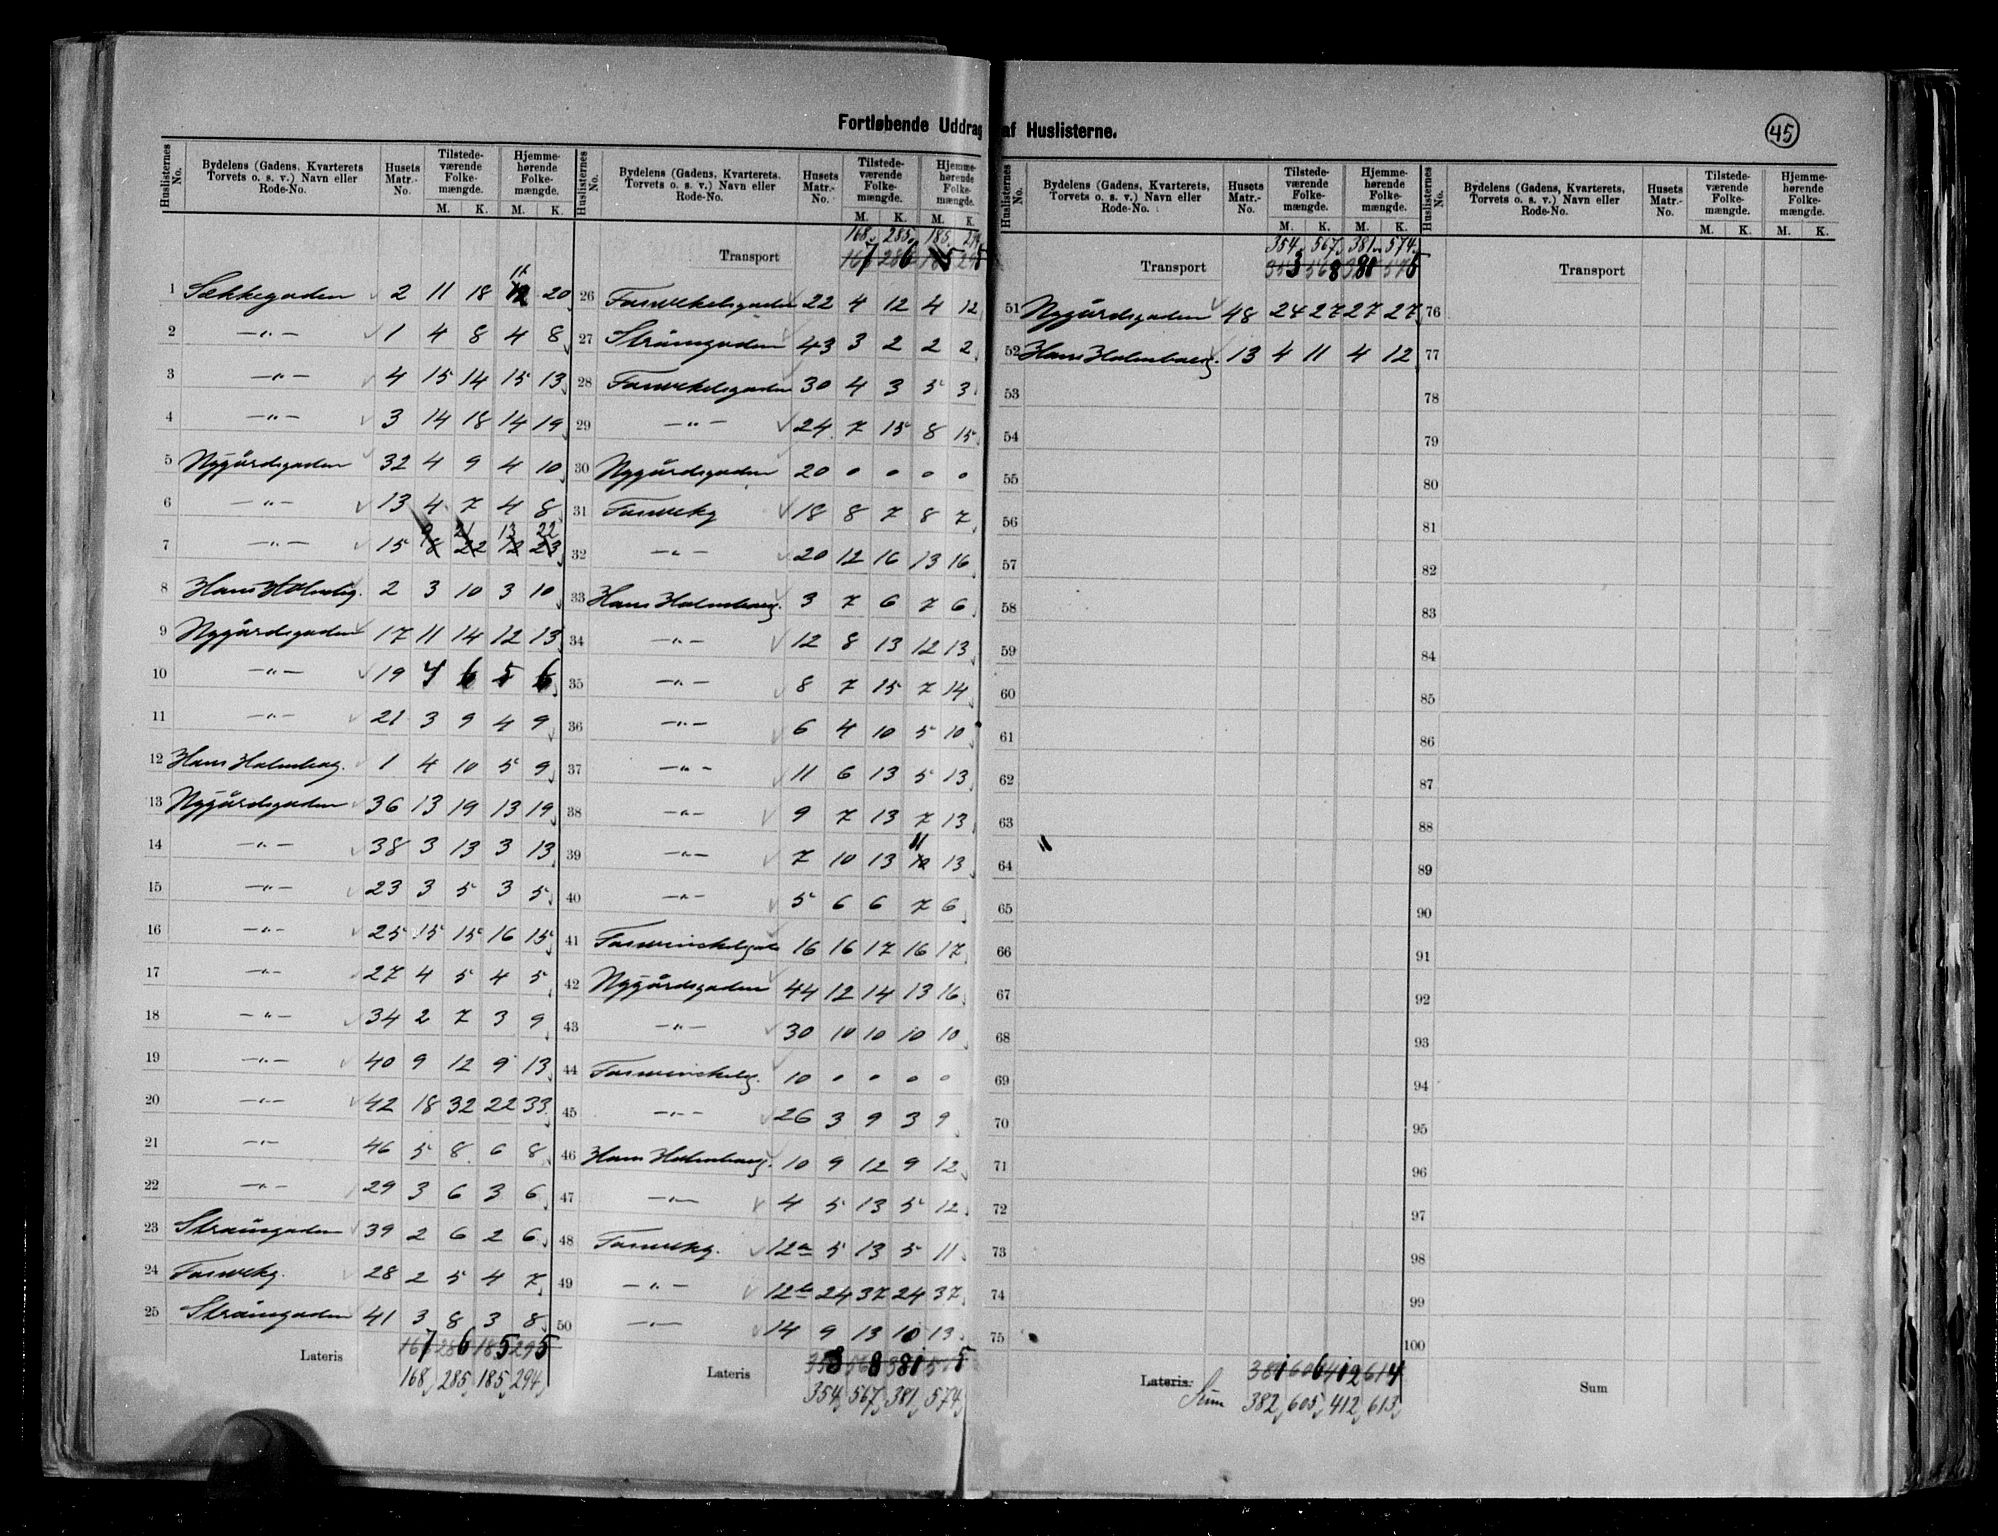 Fortløbende Uddrag af Huslisterne.
45
Huslisternes No. | Bydelens (Gadens, Kvarterets Torvets o. s. v.) Navn eller Rode-No. | Husets Matr.-No. | Tilstedeværende Folkemængde. M. K. | Hjemmehørende Folkemængde. M. K.
1 Sækkegaden 2 11 18 11 20
2 —„— 1 4 8 4 8
3 —„— 4 15 14 15 13
4 —„— 3 14 18 14 19
5 Nygårdsgaden 32 4 9 4 10
6 —„— 13 4 7 4 8
7 —„— 15 9 21 13 22
8 Hans Holmbg. 2 3 10 3 10
9 Nygårdsgaden 17 11 14 12 13
10 —„— 19 4 6 5 6
11 —„— 21 3 9 4 9
12 Hans Holmbog. 1 4 10 5 9
13 Nygårdsgaden 36 13 19 13 19
14 —„— 38 3 13 3 13
15 —„— 23 3 5 3 5
16 —„— 25 15 15 16 15
17 —„— 27 4 5 4 5
18 —„— 34 2 7 3 9
19 —„— 40 9 12 9 13
20 —„— 42 18 32 22 33
21 —„— 46 5 8 6 8
22 —„— 29 3 6 3 6
23 Strømgaden 39 2 6 2 6
24 Fosvekg. 28 2 5 4 7
25 Strømgaden 41 3 8 3 8
167 286 185 295
Lateris
168 285 185 294
Huslisternes No. | Bydelens (Gadens, Kvarterets, Torvets o. s. v.) Navn eller Rode-No. | Husets Matr.-No. | Tilstedeværende Folkemængde. M. K. | Hjemmehørende Folkemængde. M. K.
168 285 185 294
Transport 167 286 185 295
26 Fosvekelsgaden 22 4 12 4 12
27 Strømgaden 43 3 2 2 2
28 Fosvekelsgaden 30 4 3 5 3
29 —„— 24 7 15 8 15
30 Nygårdsgaden 20 0 0 0 0
31 Fosvekg 18 8 7 8 7
32 —„— 20 12 16 13 16
33 Hans Holmboeg. 3 7 6 7 6
34 —„— 12 8 13 12 13
35 —„— 8 7 15 7 14
36 —„— 6 4 10 5 10
37 —„— 11 6 13 5 13
38 —„— 9 7 13 7 13
39 —„— 7 10 13 11 13
40 —„— 5 6 6 7 6
41 Fosvinckelgade 16 16 17 16 17
42 Nygårdsgaden 44 12 14 13 16
43 —„— 30 10 10 10 10
44 Fosvinckelg. 10 0 0 0 0
45 —„— 26 3 9 3 9
46 Hans Holmboeg. 10 9 12 9 12
47 —„— 4 5 13 5 12
48 Fosvekg. 12a 5 13 5 11
49 —„— 12b 24 37 24 37
50 —„— 14 9 13 10 13
353 568 381 575
Lateris
354 567 381 574
Huslisternes No. | Bydelens (Gadens, Kvarterets, Torvets o. s. v.) Navn eller Rode-No. | Husets Matr.-No. | Tilstedeværende Folkemængde. M. K. | Hjemmehørende Folkemængde. M. K.
354 567 381 574
Transport 353 568 381 575
51 Nygårdsgaden 48 24 27 27 27
52 Hans Holmboeg. 13 4 11 4 12
53
54
55
56
57
58
59
60
61
62
63
64
65
66
67
68
69
70
71
72
73
74
75
Lateris. 381 606 412 614
Sum 382 605 412 613
Huslisternes No. | Bydelens (Gadens, Kvarterets, Torvets o. s. v.) Navn eller Rode-No. | Husets Matr.-No. | Tilstedeværende Folkemængde. M. K. | Hjemmehørende Folkemængde. M. K.
Transport
76
77
78
79
80
81
82
83
84
85
86
87
88
89
90
91
92
93
94
95
96
97
98
99
100
Sum